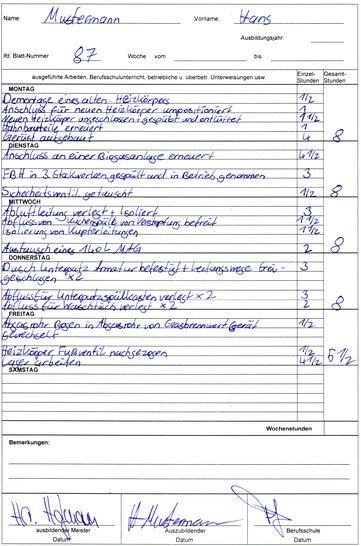 Name: Mustermann Vorname: Hans
Ausbildungsjahr:
lfd. Blatt-Nummer 87 Woche vom bis
ausgeführte Arbeiten, Berufsschulunterricht, betriebliche u. überbetr. Unterweisungen usw. Einzel-Stunden Gesamt-Stunden
MONTAG
Demontage eines alten Heizkörpers 1/2
Anschluss für neuen Heizkörper umpositioniert 1
Neuen Heizkörper angeschlossen + gespült und entlüftet 1 1/2
erneuert 1
Gerüst aufgebaut 4 8
DIENSTAG
Anschluss an einer Biogasanlage erneuert 4 1/2
FBH in 3 Stockwerken gespült und in Betrieb genommen 3
Sicherheitsventil getauscht 1/2 8
MITTWOCH
Abluftleitung verlegt + Isoliert 3
Abfluss von Küchenspüle von Verstopfung befreit 1 1/2
Isolierung von Kupferleitungen 1 1/2
Austausch eines 140L MAG 2 8
DONNERSTAG
Dusch Unterputz Armatur befestigt + Leitungswege frei-
geschlagen x2 3
Abfluss für Unterputzspülkasten verlegt x2 3
Abfluss für Waschtisch verlegt x2 2 8
FREITAG
Abgasrohr Bogen in Abgasrohr von Gasbrennwert Gerät 1/2
gewechselt
Heizkörper Fußventil nachgezogen 1/2
Lager arbeiten 4 1/2 5 1/2
SAMSTAG
Wochenstunden
Bemerkungen:
Hr. Hofmann H. Mustermann
ausbildender Meister Auszubildender Berufsschule
Datum Datum Datum